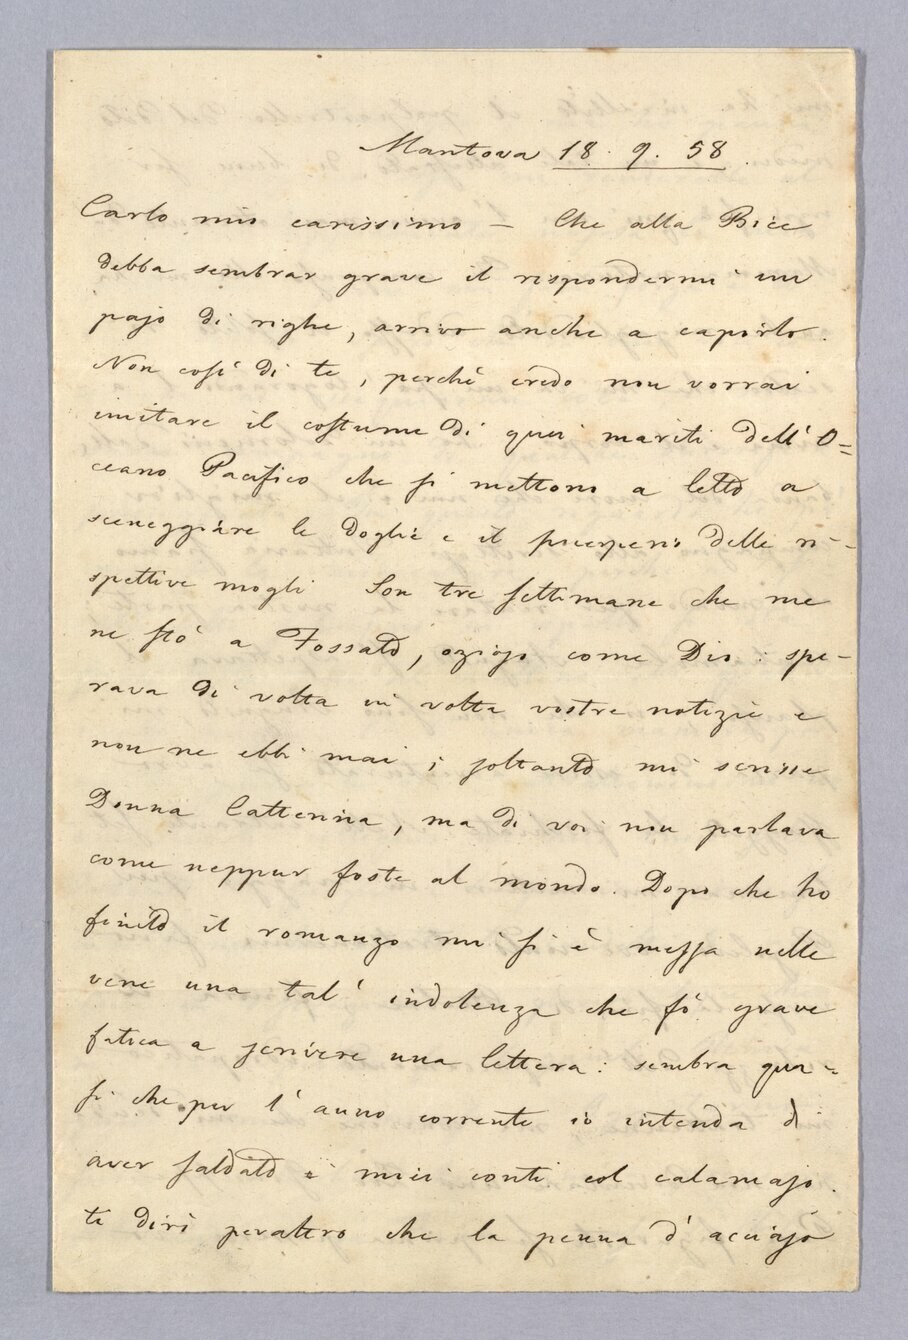 Mantova 18. 9. 58.
Carlo mio carissimo — Che alla Bice
debba sembrar grave il rispondermi un
pajo di righe, arrivo anche a capirlo.
Non così di te, perchè credo non vorrai
imitare il costume di quei mariti dell'O=
ceano Pacifico che si mettono a letto a
sceneggiare le doglie e il puerperio delle ri-
spettive mogli Son tre settimane che me
ne stò a Fossato, ozioso come Dio: spe-
rava di volta in volta vostre notizie e
non ne ebbi mai; soltanto mi scrisse
Donna Catterina, ma di voi non parlava
come neppur foste al mondo. Dopo che ho
finito il romanzo mi si è messa nelle
vene una tal' indolenza che fò grave
fatica a scrivere una lettera: sembra qua=
si che per l'anno corrente io intenda di
aver saldato i miei conti col calamajo.
ti dirò peraltro che la penna d'acciajo